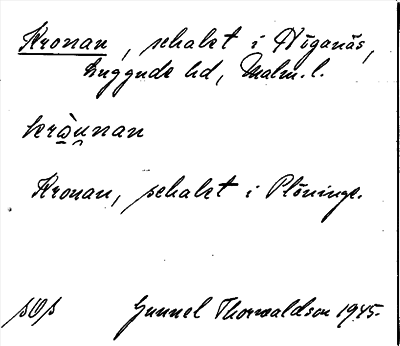 Kronan, schakt i Höganäs,
Luggude hd, Malm. l.
kràu̯nan
Kronan, schakt i Plöninge.
sOs Gunnel Thorvaldson 1945.